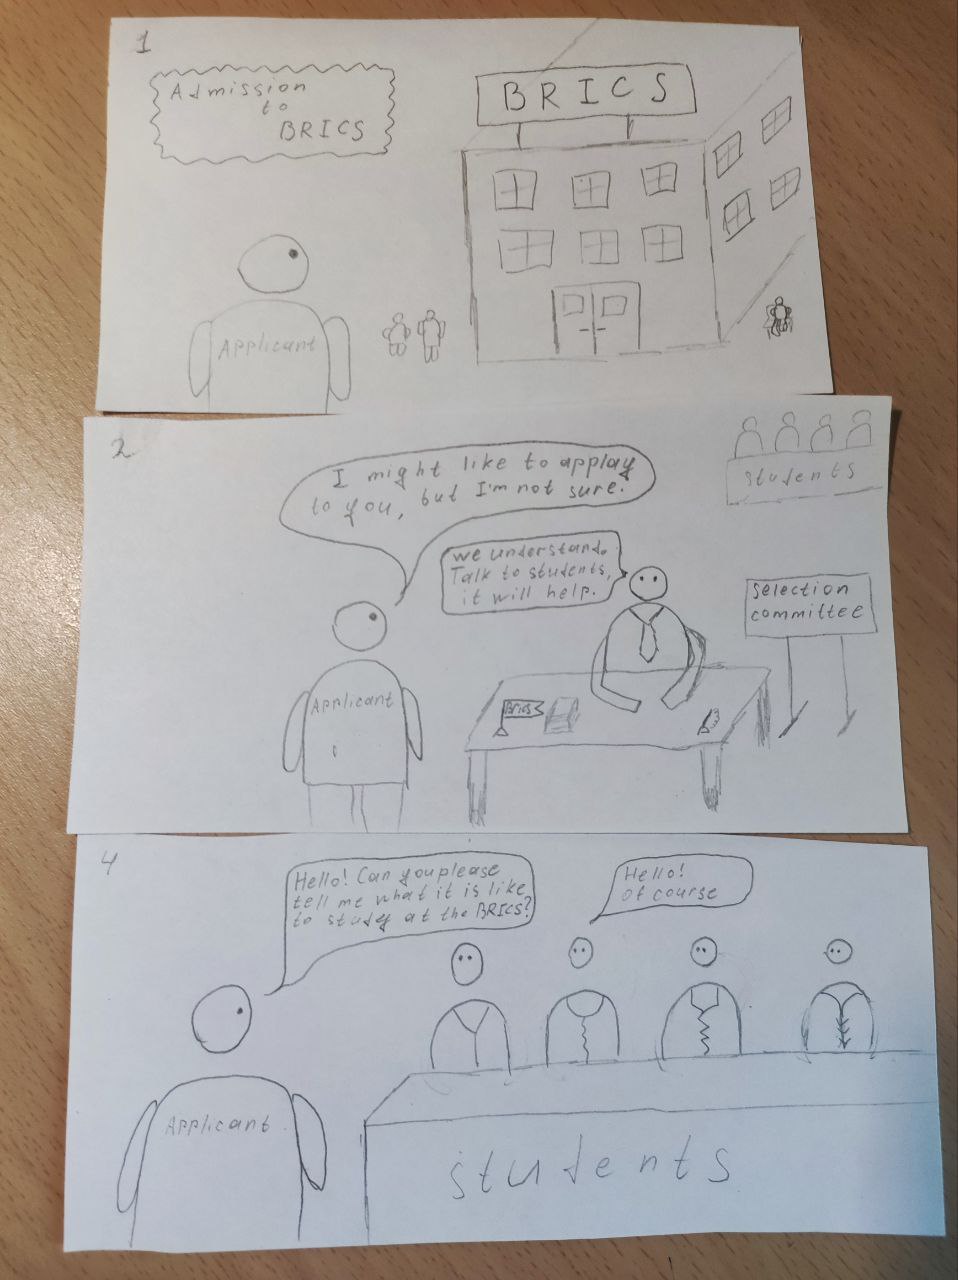 1
Admission
to
BRICS
BRICS
Applicant
2
I might like to applay
to you, but I'm not sure.
we understand.
Talk to students,
it will help.
students
Selection
committee
Applicant
Brics
4
Hello! Can you please
tell me what it is like
to study at the BRICS?
Hello!
Of course
Applicant
students